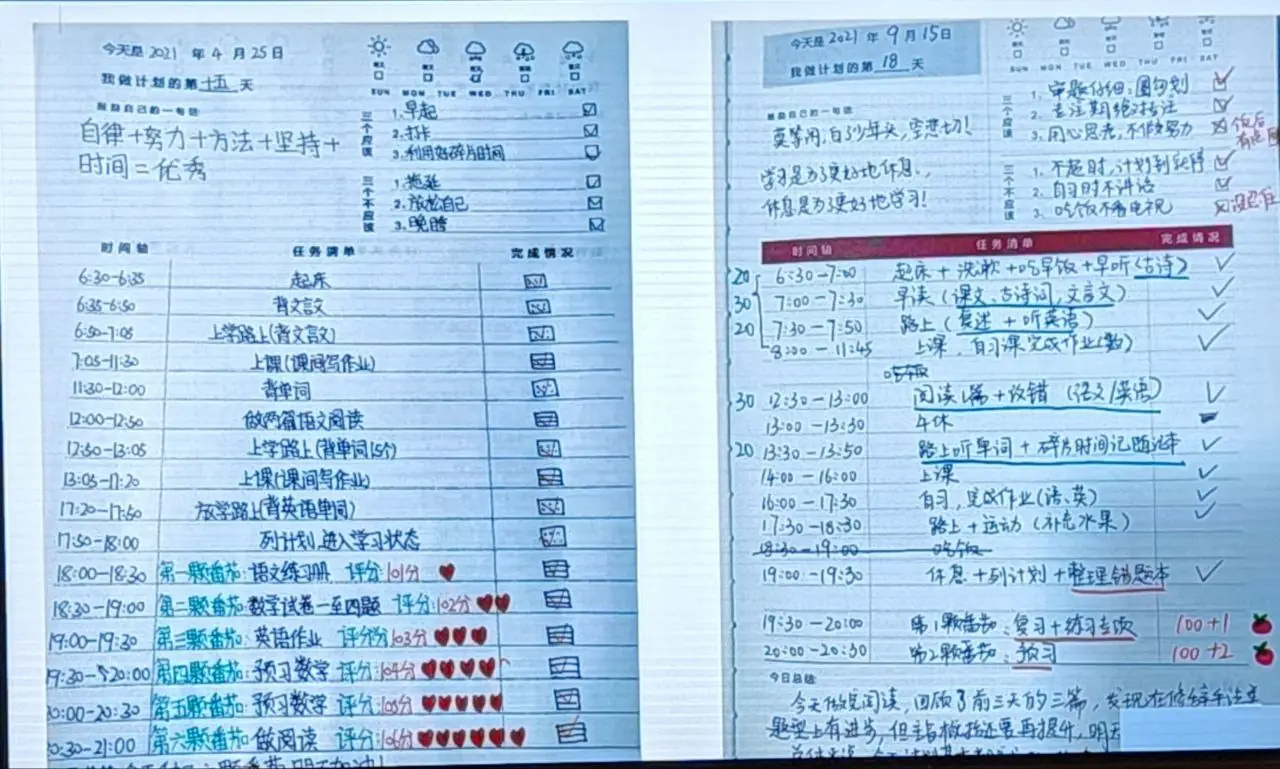 今天是 2021 年 4 月 25 日
我做计划的第 十五 天
SUN MON TUE WED THU FRI SAT
激励自己的一句话
自律+努力+方法+坚持+
时间=优秀
三个应该
1.早起
2.打卡
3.利用好碎片时间
三个不应该
1.拖延
2.放松自己
3.晚睡
时间轴 任务清单 完成情况
6:30-6:35 起床
6:35-6:50 背文言文
6:50-7:05 上学路上(背文言文)
7:05-11:30 上课(课间写作业)
11:30-12:00 背单词
12:00-12:50 做两篇语文阅读
12:50-13:05 上学路上(背单词15个)
13:05-17:20 上课(课间写作业)
17:20-17:50 放学路上(背英语单词)
17:50-18:00 列计划,进入学习状态
18:00-18:30 第一颗番茄:语文练习册 评分:101分
18:30-19:00 第二颗番茄:数学试卷一至四题 评分:102分
19:00-19:30 第三颗番茄:英语作业 评分:103分
19:30-20:00 第四颗番茄:预习数学 评分:104分
20:00-20:30 第五颗番茄:预习数学 评分:105分
20:30-21:00 第六颗番茄:做阅读 评分:106分
今天是 2021 年 9 月 15 日
我做计划的第 18 天
SUN MON TUE WED THU FRI SAT
激励自己的一句话
莫等闲,白了少年头,空悲切!
学习是为了更好地休息,
休息是为了更好地学习!
三个应该
1. 审题仔细:圈勾划
2. 专注期绝对专注
3. 用心思考,不假努力
饭后
三个不应该
1. 不超时,计划到
2. 自习时不讲话
3. 吃饭不看电视
没忍住
时间轴 任务清单 完成情况
20 6:30-7:00 起床+洗漱+吃早饭+早听(古诗)
30 7:00-7:30 早读(课文、古诗词,文言文)
20 7:30-7:50 路上(复述+听英语)
8:00-11:45 上课,自习课完成作业(数)
吃饭
30 12:30-13:00 阅读1篇+改错(语文/英语)
13:00-13:30 午休
20 13:30-13:50 路上听单词+碎片时间记随记本
14:00-16:00 上课
16:00-17:30 自习,完成作业(语、英)
17:30-18:30 路上+运动(补充水果)
18:30-19:00 吃饭
19:00-19:30 休息+列计划+整理错题本
19:30-20:00 第1颗番茄:复习+练习专项 100+1
20:00-20:30 第2颗番茄:预习 100+2
今日总结
今天做完阅读,回顾了前三天的三篇,发现在修辞手法
题型上有进步,但主旨概括还要再提升,明天